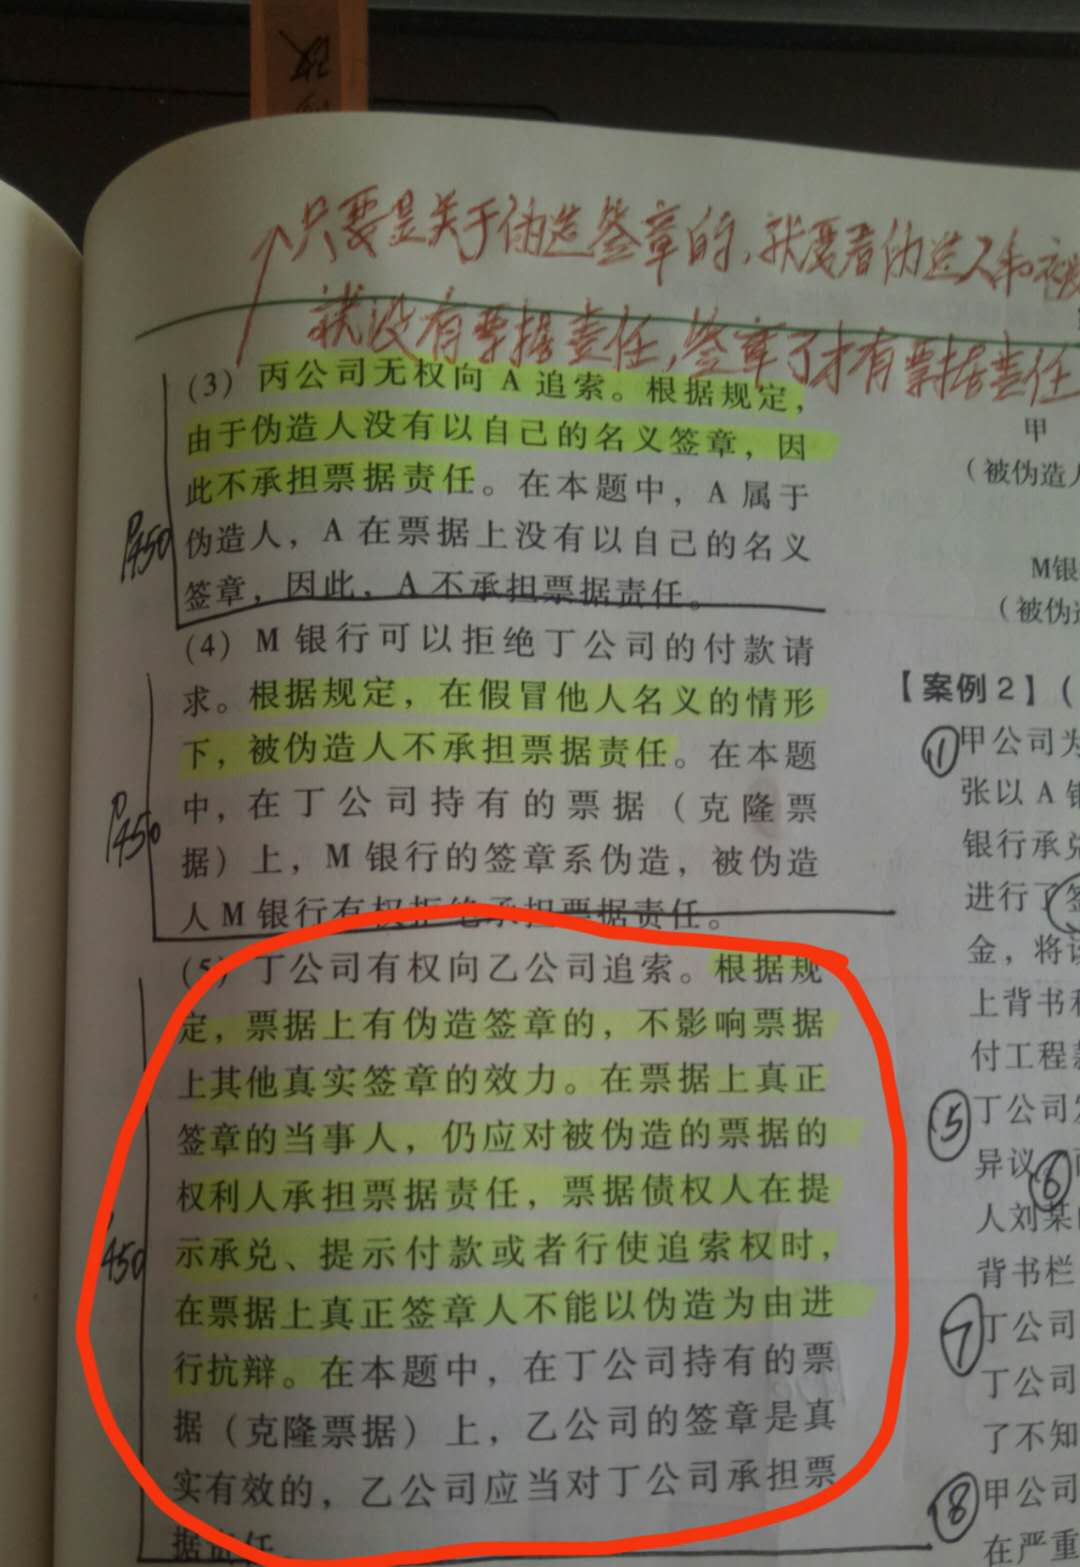 只要是关于伪造签章的，就要看伪造人和被
就没有票据责任，签章了才有票据责任
(3) 丙公司无权向 A 追索。根据规定，
由于伪造人没有以自己的名义签章，因
此不承担票据责任。在本题中，A 属于
伪造人，A 在票据上没有以自己的名义
签章，因此，A 不承担票据责任。
P450
(4) M 银行可以拒绝丁公司的付款请
求。根据规定，在假冒他人名义的情形
下，被伪造人不承担票据责任。在本题
中，在丁公司持有的票据（克隆票
据）上，M 银行的签章系伪造，被伪造
人 M 银行有权拒绝承担票据责任。
P450
(5) 丁公司有权向乙公司追索。根据规
定，票据上有伪造签章的，不影响票据
上其他真实签章的效力。在票据上真正
签章的当事人，仍应对被伪造的票据的
权利人承担票据责任，票据债权人在提
示承兑、提示付款或者行使追索权时，
在票据上真正签章人不能以伪造为由进
行抗辩。在本题中，在丁公司持有的票
据（克隆票据）上，乙公司的签章是真
实有效的，乙公司应当对丁公司承担票
据责任
P450
甲
（被伪造人
M银
（被伪造
【案例 2】(
①甲公司为
张以 A 银
银行承兑
进行了签
金，将该
上背书
付工程款
⑤丁公司
异议 ⑥
人刘某
背书栏
⑦丁公司
丁公司
了不知
⑧甲公司
在严重